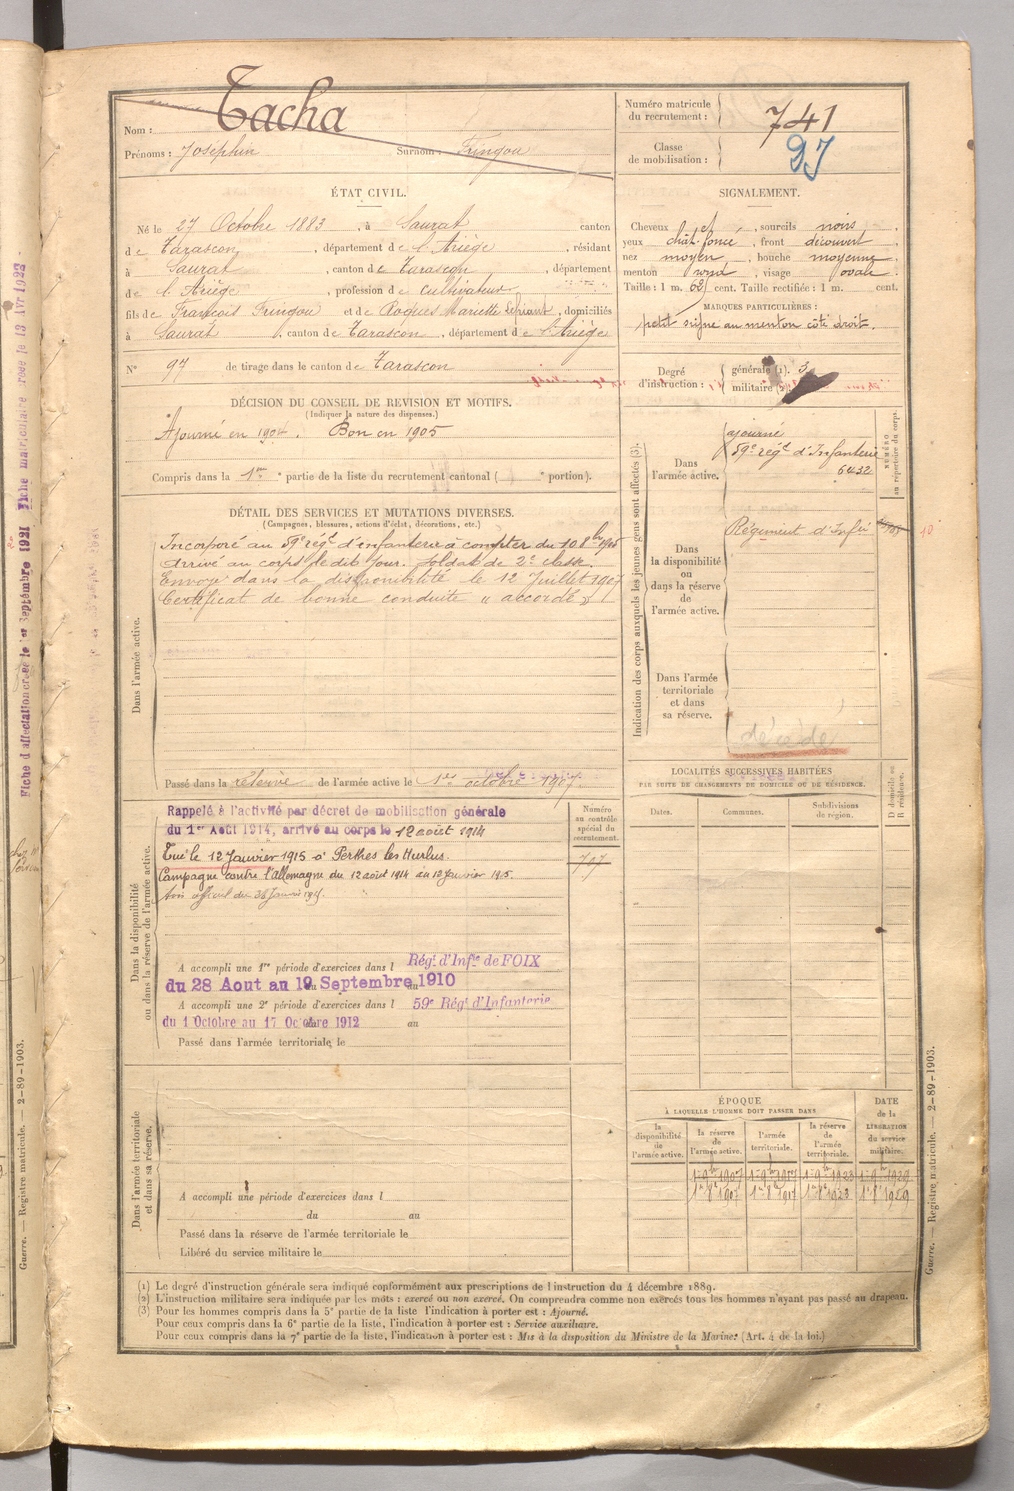 Nom : Tacha
Prénoms : Josephin Surnom : Fringou
Numéro matricule du recrutement : 741
Classe de mobilisation : 97
ÉTAT CIVIL.
Né le 27 Octobre 1883, à Saurat canton
de Tarascon, département de l'Ariège, résidant
à Saurat, canton de Tarascon, département
de l'Ariège, profession de cultivateur,
fils de François Fringou et de Roques Mariette, domiciliés
à Saurat, canton de Tarascon, département de l'Ariège
N° 97 de tirage dans le canton de Tarascon
SIGNALEMENT.
Cheveux et, sourcils noirs,
yeux chât. foncé, front découvert
nez moyen, bouche moyenne
menton rond, visage ovale.
Taille : 1 m. 68 cent. Taille rectifiée : 1 m. cent.
MARQUES PARTICULIÈRES :
petit signe au menton côté droit.
Degré d'instruction : générale (1). 3
militaire (2)
DÉCISION DU CONSEIL DE REVISION ET MOTIFS.
(Indiquer la nature des dispenses.)
Ajourné en 1904. Bon en 1905
Compris dans la 1ere partie de la liste du recrutement cantonal ( e portion).
DÉTAIL DES SERVICES ET MUTATIONS DIVERSES.
(Campagnes, blessures, actions d'éclat, décorations, etc.)
Dans l'armée active.
Incorporé au 59e régt d'infanterie à compter du 10 8bre 1905
Arrivé au corps le dit jour. Soldat de 2e classe.
Envoyé dans la disponibilité le 12 Juillet 1907
Certificat de bonne conduite "accordé"
Passé dans la réserve de l'armée active le 1er octobre 1907.
Indication des corps auxquels les jeunes gens sont affectés (3).
Dans l'armée active.
ajourné
59e régt d'Infanterie
6432
NUMÉRO au répertoire du corps.
Dans la disponibilité ou dans la réserve de l'armée active.
Régiment d'Infie
Dans l'armée territoriale et dans sa réserve.
décédé
LOCALITÉS SUCCESSIVES HABITÉES
PAR SUITE DE CHANGEMENTS DE DOMICILE OU DE RÉSIDENCE.
Dates. Communes. Subdivisions de région. D domicile ou R résidence.
Dans la disponibilité ou dans la réserve de l'armée active.
Rappelé à l'activité par décret de mobilisation générale
du 1er Août 1914, arrivé au corps le 12 août 1914
Tué le 12 Janvier 1915 à Perthes les Hurlus.
Campagne contre l'Allemagne du 12 août 1914 au 12 Janvier 1915.
Avis officiel du 26 Janvier 1915.
Numéro au contrôle spécial du recrutement.
707
A accompli une 1re période d'exercices dans l Régt d'Infie de FOIX
du 28 Aout au 19 Septembre 1910
A accompli une 2e période d'exercices dans l 59e Régt d'Infanterie
du 1 Octobre au 17 Octobre 1912 au
Passé dans l'armée territoriale le
Dans l'armée territoriale et dans sa réserve.
A accompli une période d'exercices dans l
du au
Passé dans la réserve de l'armée territoriale le
Libéré du service militaire le
ÉPOQUE
À LAQUELLE L'HOMME DOIT PASSER DANS
la disponibilité de l'armée active. la réserve de l'armée active. l'armée territoriale. la réserve de l'armée territoriale. DATE de la LIBÉRATION du service militaire.
1er 9bre 1907 1er 9bre 1917 1er 9bre 1923 1er 9bre 1929
1er 8e 1907 1er 8e 1917 1er 8e 1923 1er 8e 1929
(1) Le degré d'instruction générale sera indiqué conformément aux prescriptions de l'instruction du 4 décembre 1889.
(2) L'instruction militaire sera indiquée par les mots : exercé ou non exercé. On comprendra comme non exercés tous les hommes n'ayant pas passé au drapeau.
(3) Pour les hommes compris dans la 5e partie de la liste l'indication à porter est : Ajourné.
Pour ceux compris dans la 6e partie de la liste, l'indication à porter est : Service auxiliaire.
Pour ceux compris dans la 7e partie de la liste, l'indication à porter est : Mis à la disposition du Ministre de la Marine. (Art. 4 de la loi.)
Guerre. — Registre matricule. — 2-89-1903.
Guerre. — Registre matricule. — 2-89-1903.
Fiche d'affectation créée le 1er Septembre 1921 Fiche matriculaire créée le 13 Avr 1922